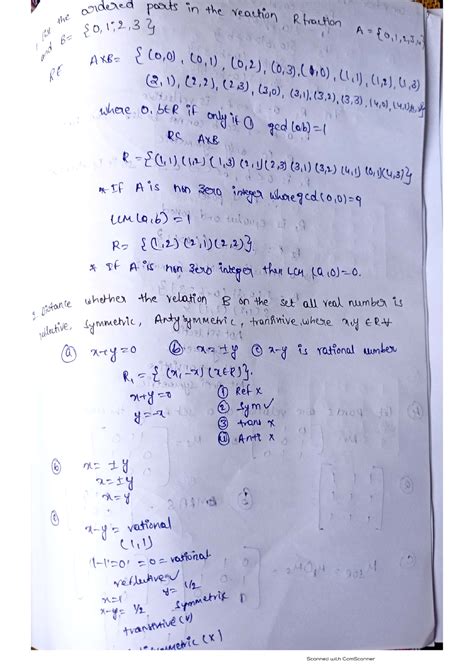 the ordered parts in the reaction R fraction A = {0,1,2,3,4}
and B = {0,1,2,3}
RE AXB = {(0,0), (0,1), (0,2), (0,3), (1,0), (1,1), (1,2), (1,3)
(2,1), (2,2), (2,3), (3,0), (3,1), (3,2), (3,3), (4,0), (4,1)
where a, b∈R if only if ① gcd(a,b)=1
RC AXB
R = {(1,1)(1,2)(1,3)(2,1)(2,3)(3,1)(3,2)(4,1)(0,1)(4,3)}
* If A is non zero integer where gcd(0,0)=9
LCM(a,b)=1
R= {(1,2)(2,1)(2,2)}.
* If A is non zero integer then LCM (a,0)=0.
whether the relation B on the set all real number is
Symmetric, Antysymmetric, where x,y ∈R
ⓐ x+y=0 ⓑ x=±y ⓒ x-y is rational number
R₁ = {(x,-x)(x∈R)}.
x+y=0 ① Ref x
y=-x ② Sym✓
③ tran x
④ Anti x
ⓑ x= ±y
x=±y
x=y
ⓒ
x-y = rational
(1,1)
1-1=0 = 0 = rational
reflective y= 1/2
x=1
x-y= 1/2 Symmetrix
(x)
Scanned with CamScanner